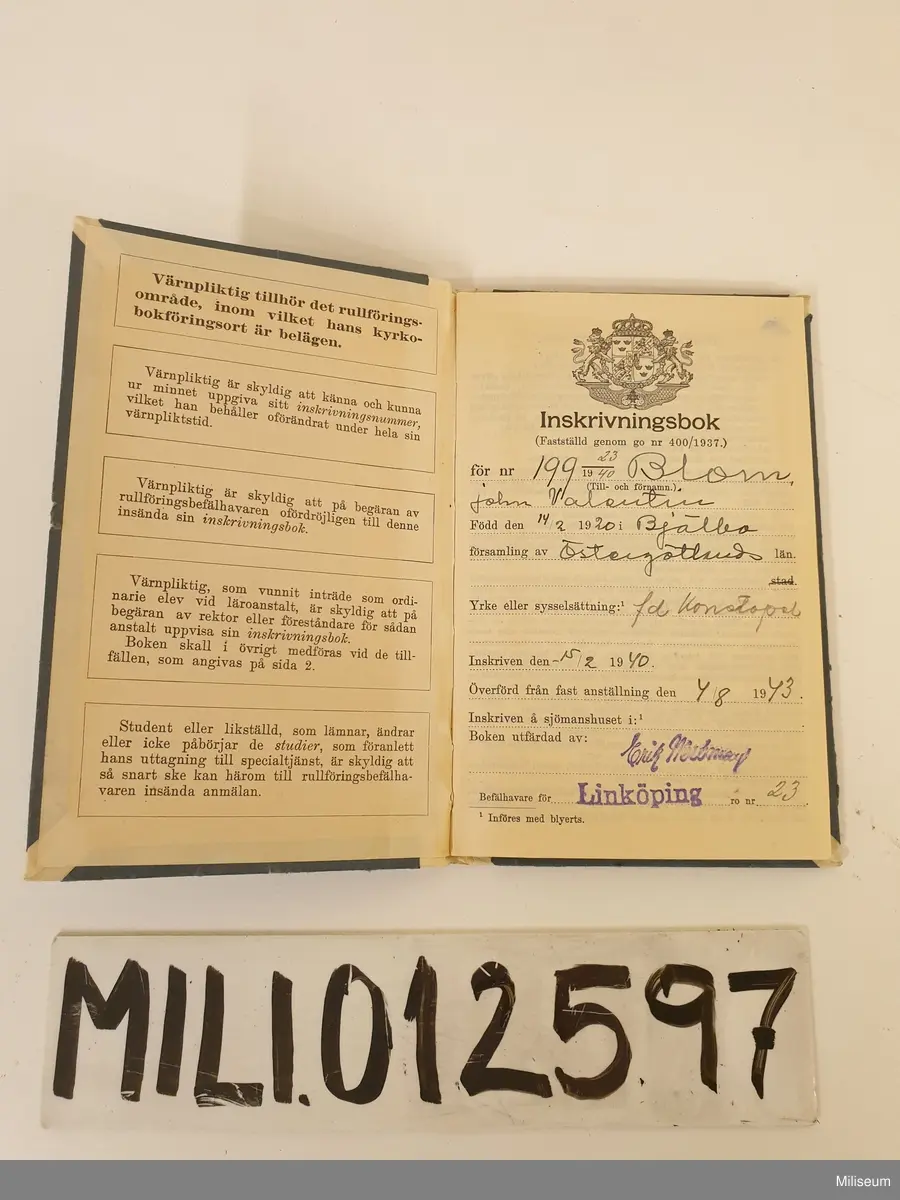 Värnpliktig tillhör det rullförings-
område, inom vilket hans kyrko-
bokföringsort är belägen.
Värnpliktig är skyldig att känna och kunna
ur minnet uppgiva sitt inskrivningsnummer,
vilket han behåller oförändrat under hela sin
värnpliktstid.
Värnpliktig är skyldig att på begäran av
rullföringsbefälhavaren ofördröjligen till denne
insända sin inskrivningsbok.
Värnpliktig, som vunnit inträde som ordi-
narie elev vid läroanstalt, är skyldig att på
begäran av rektor eller föreståndare för sådan
anstalt uppvisa sin inskrivningsbok.
Boken skall i övrigt medföras vid de till-
fällen, som angivas på sida 2.
Student eller likställd, som lämnar, ändrar
eller icke påbörjar de studier, som föranlett
hans uttagning till specialtjänst, är skyldig att
så snart ske kan härom till rullföringsbefälha-
varen insända anmälan.
Inskrivningsbok
(Fastställd genom go nr 400/1937.)
för nr 199 23/1940 Blom,
(Till- och förnamn.)
John Valentin
Född den 14/2 1920 i Bjälbo
församling av Östergötlands län.
stad.
Yrke eller sysselsättning:¹ fd Konstapel
Inskriven den 15/2 1940.
Överförd från fast anställning den 4/8 1943.
Inskriven å sjömanshuset i:¹
Boken utfärdad av:
Erik
Befälhavare för Linköping ro nr 23
¹ Införes med blyerts.
MILI.012597
Miliseum